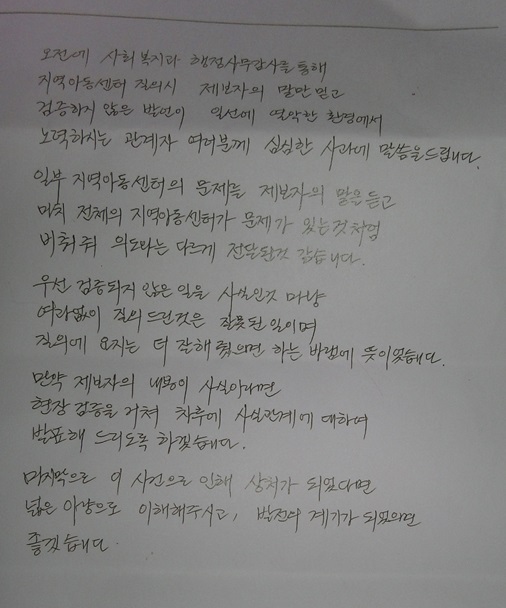 오전에 사회복지과 행정사무감사를 통해
지역아동센터 질의시 제보자의 말만 믿고
검증하지 않은 발언이 일선에 열악한 환경에서
노력하시는 관계자 여러분께 심심한 사과에 말씀을드립니다.
일부 지역아동센터의 문제를 제보자의 말은 듣고
마치 전체의 지역아동센터가 문제가 있는것처럼
비춰줘 의도와는 다르게 전달된것 같습니다.
우선 검증되지 않은 일을 사실인것 마냥
여과없이 질의드린것은 잘못된 일이며
질의에 요지는 더 잘해줬으면 하는 바램에 뜻이었습니다.
만약 제보자의 내용이 사실이라면
현장 검증을 거쳐 차후에 사실관계에 대하여
발표해 드리도록 하겠습니다.
마지막으로 이 사건으로 인해 상처가 되었다면
넓은 아량으로 이해해주시고, 발전의 계기가 되었으면
좋겠습니다.